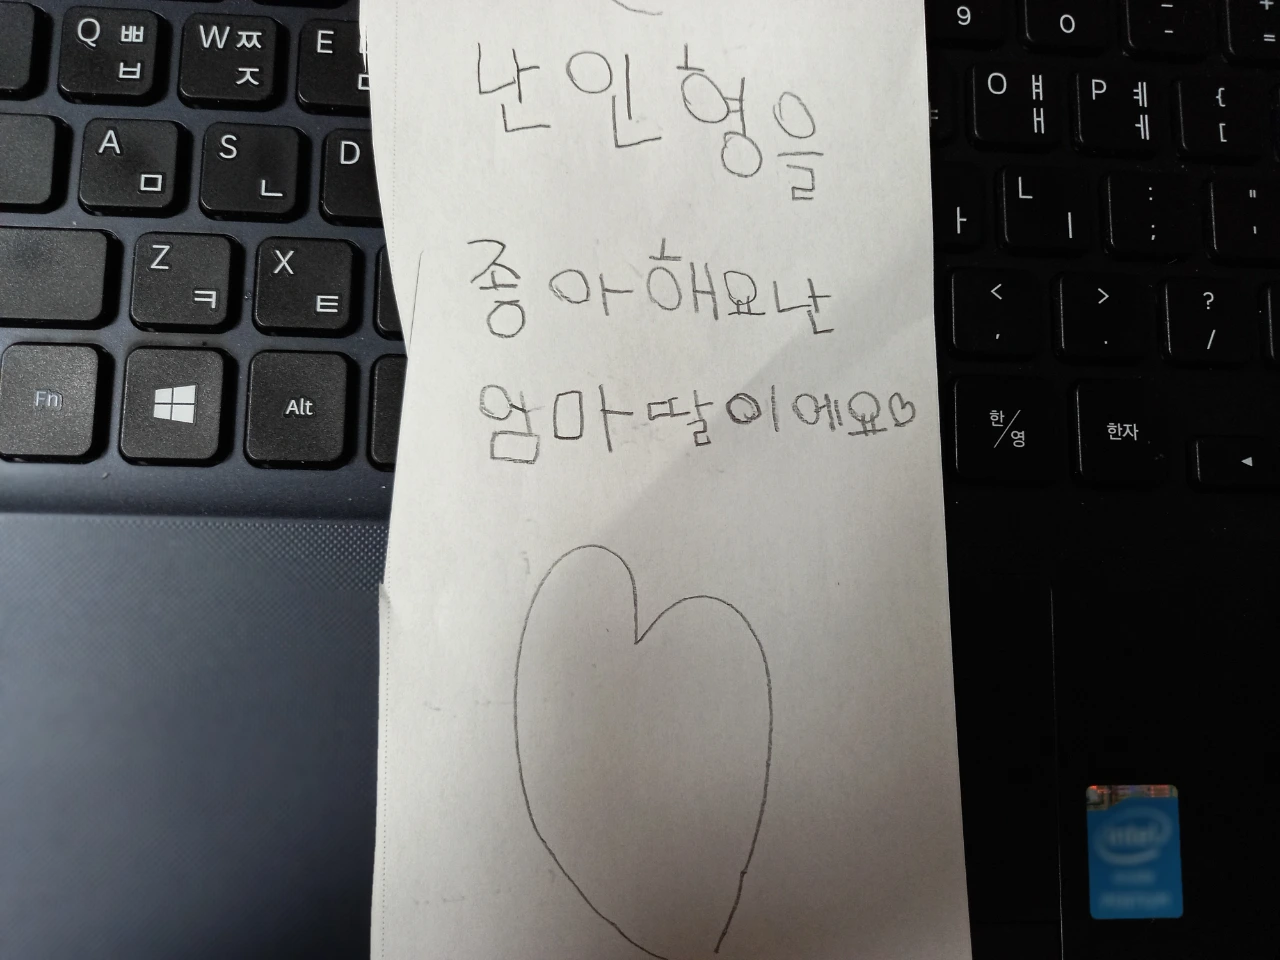 난 인형을
좋아해요 난
엄마 딸이에요♡
Q ㅃ ㅂ
W ㅉ ㅈ
E
A ㅁ
S ㄴ
D
Z ㅋ
X ㅌ
Fn
Alt
9
0
- -
+ =
O ㅒ ㅐ
P ㅖ ㅔ
{ [
L ㅣ
: ;
" '
< ,
> .
? /
한/영
한자
intel